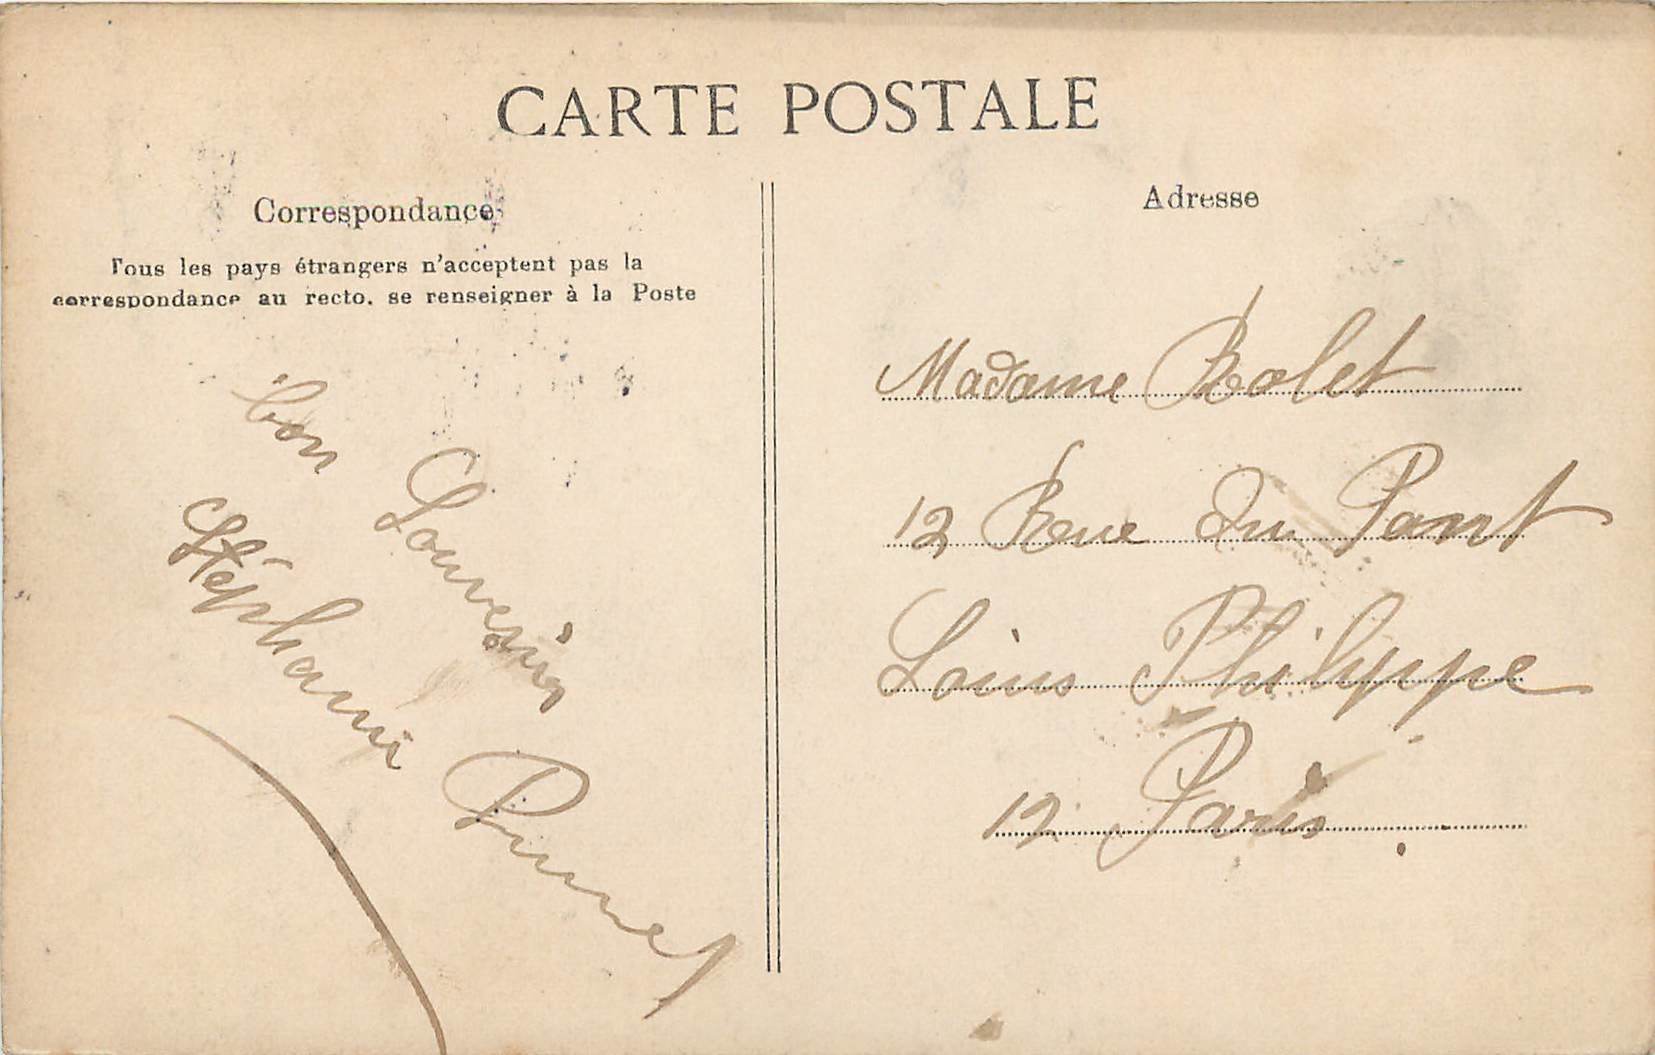 CARTE POSTALE
Correspondance
Tous les pays étrangers n'acceptent pas la
correspondance au recto. se renseigner à la Poste
bon Souvenir
Stéphanie
Adresse
Madame Rolet
12 Rue du Pont
Louis Philippe
12 Paris